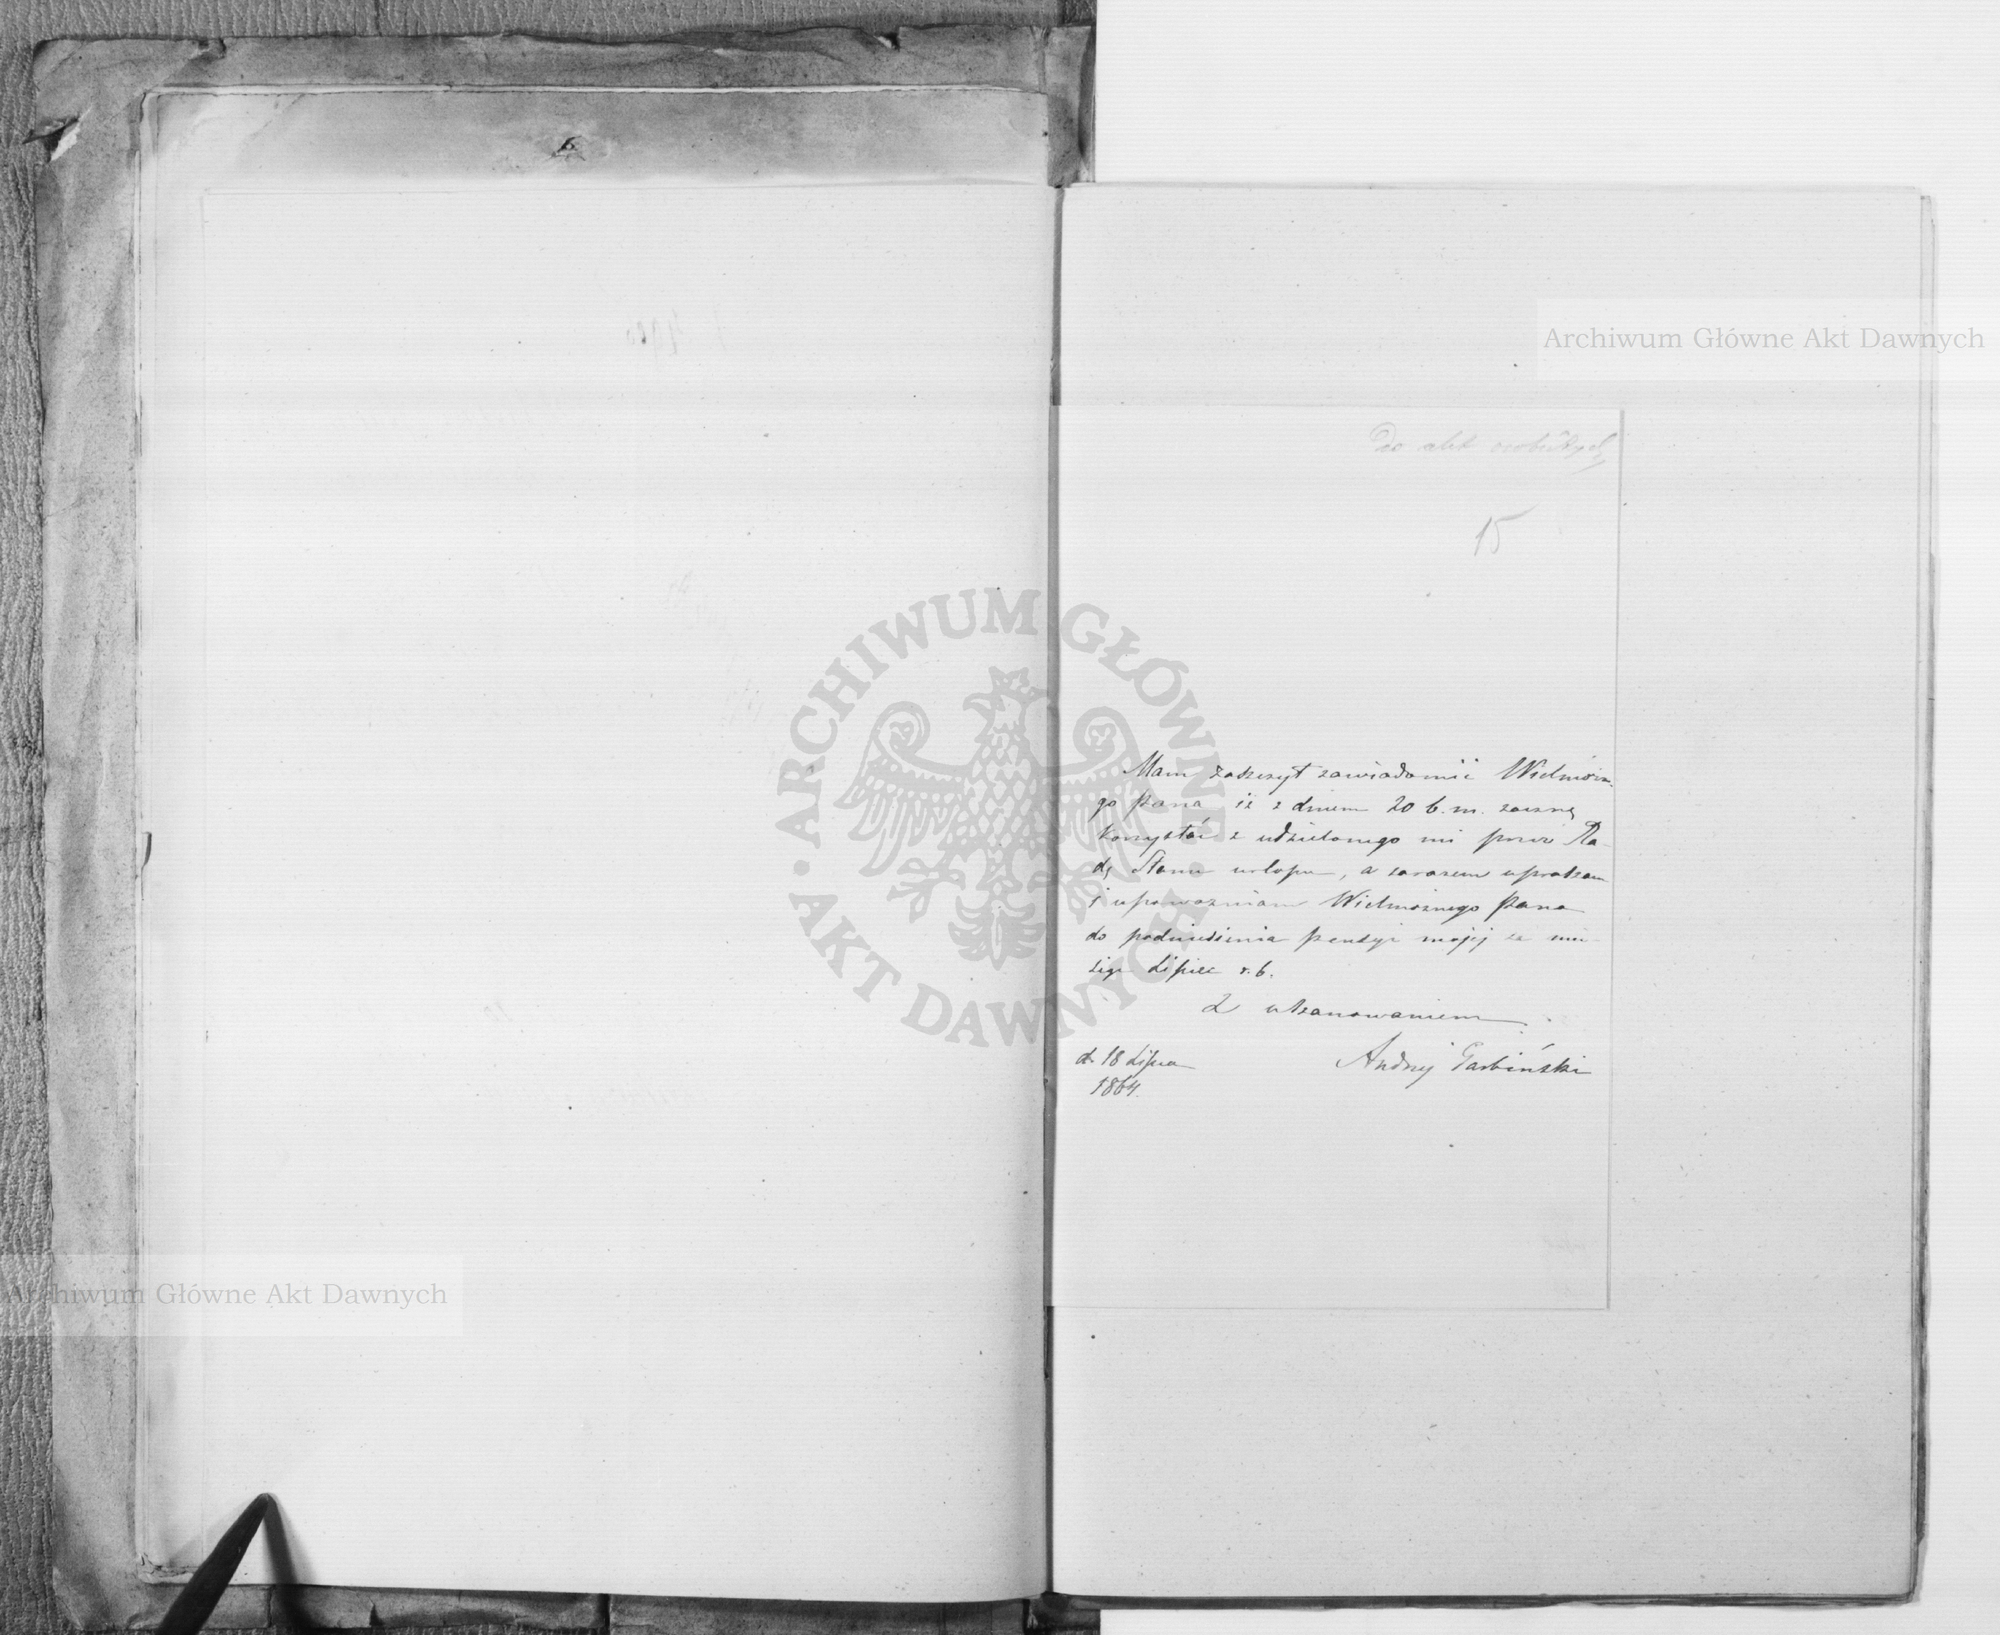 6
Do akt osobistych
15
Mam zaszczyt zawiadomić Wielmożne-
go Pana iż z dniem 20 b. m. zacznę
korzystać z udzielonego mi przez Ra-
dę Stanu urlopu, a zarazem upraszam
i upoważniam Wielmożnego Pana
do podniesienia pensyi mojej za mie-
siąc Lipiec r. b.
Z uszanowaniem
Andrzej Garbiński
d. 18 Lipca
1864.
Archiwum Główne Akt Dawnych
Archiwum Główne Akt Dawnych
ARCHIWUM GŁÓWNE · AKT DAWNYCH ·